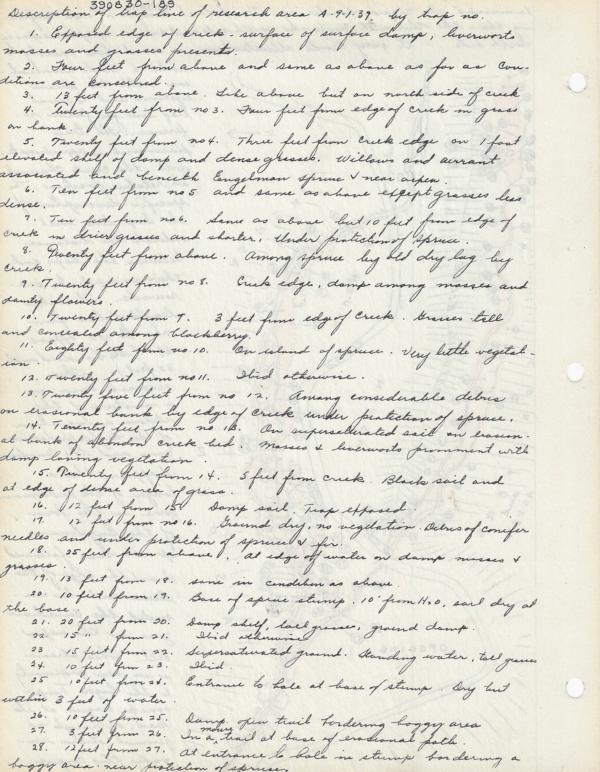 390830-189
Description of trap line of research area A-9-1-39. by trap no.
1. Exposed edge of creek - surface of surface damp, liverworts
mosses and grasses present.
2. Four feet from above and same as above as far as con-
ditions are concerned.
3. 13 feet from above. Like above but on north side of creek
4. Twenty feet from no 3. Four feet from edge of creek in grass
on bank.
5. Twenty feet from no 4. Three feet from creek edge on 1 foot
elevated shelf of damp and dense grasses. Willows and currant
associated and beneath Engelman spruce & near aspen.
6. Ten feet from no 5 and same as above except grasses less
dense.
7. Ten feet from no 6. Same as above but 10 feet from edge of
creek in drier grasses and shorter. Under protection of spruce.
8. Twenty feet from above. Among spruce by old dry log by
creek.
9. Twenty feet from no 8. Creek edge, damp among mosses and
dainty flowers.
10. Twenty feet from 9. 3 feet from edge of creek. Grasses tall
and concealed among blackberry.
11. Eighty feet from no 10. On island of spruce. Very little vegetat-
ion.
12. Twenty feet from no 11. Ibid otherwise.
13. Twenty five feet from no 12. Among considerable debris
on erosional bank by edge of creek under protection of spruce.
14. Twenty feet from no 13. On supersaturated soil on erosion-
al bank of abandon creek bed. Mosses & liverworts prominent with
damp loving vegetation.
15. Twenty feet from 14. 5 feet from creek. Black soil and
at edge of dense area of grass.
16. 12 feet from 15. Damp soil. Trap exposed.
17. 12 feet from no 16. Ground dry, no vegetation. Debris of conifer
needles and under protection of spruce & fir.
18. 25 feet from above. At edge of water on damp mosses &
grasses.
19. 13 feet from 18. same in condition as above.
20. 10 feet from 19. Base of spruce stump. 10' from H2O, soil dry at
the base.
21. 20 feet from 20. Damp shelf, tall grasses, ground damp.
22. 15 " from 21. Ibid otherwise
23 15 feet from 22. Supersaturated ground. Standing water, tall grasses
24. 10 feet from 23. Ibid.
25 10 feet from 24. Entrance to hole at base of stump. Dry but
within 3 feet of water.
26. 10 feet from 25. Damp open trail bordering boggy area
27. 3 feet from 26. In a mouse trail at base of erosional path.
28. 12 feet from 27. At entrance to hole in stump bordering a
boggy area - near protection of spruces.